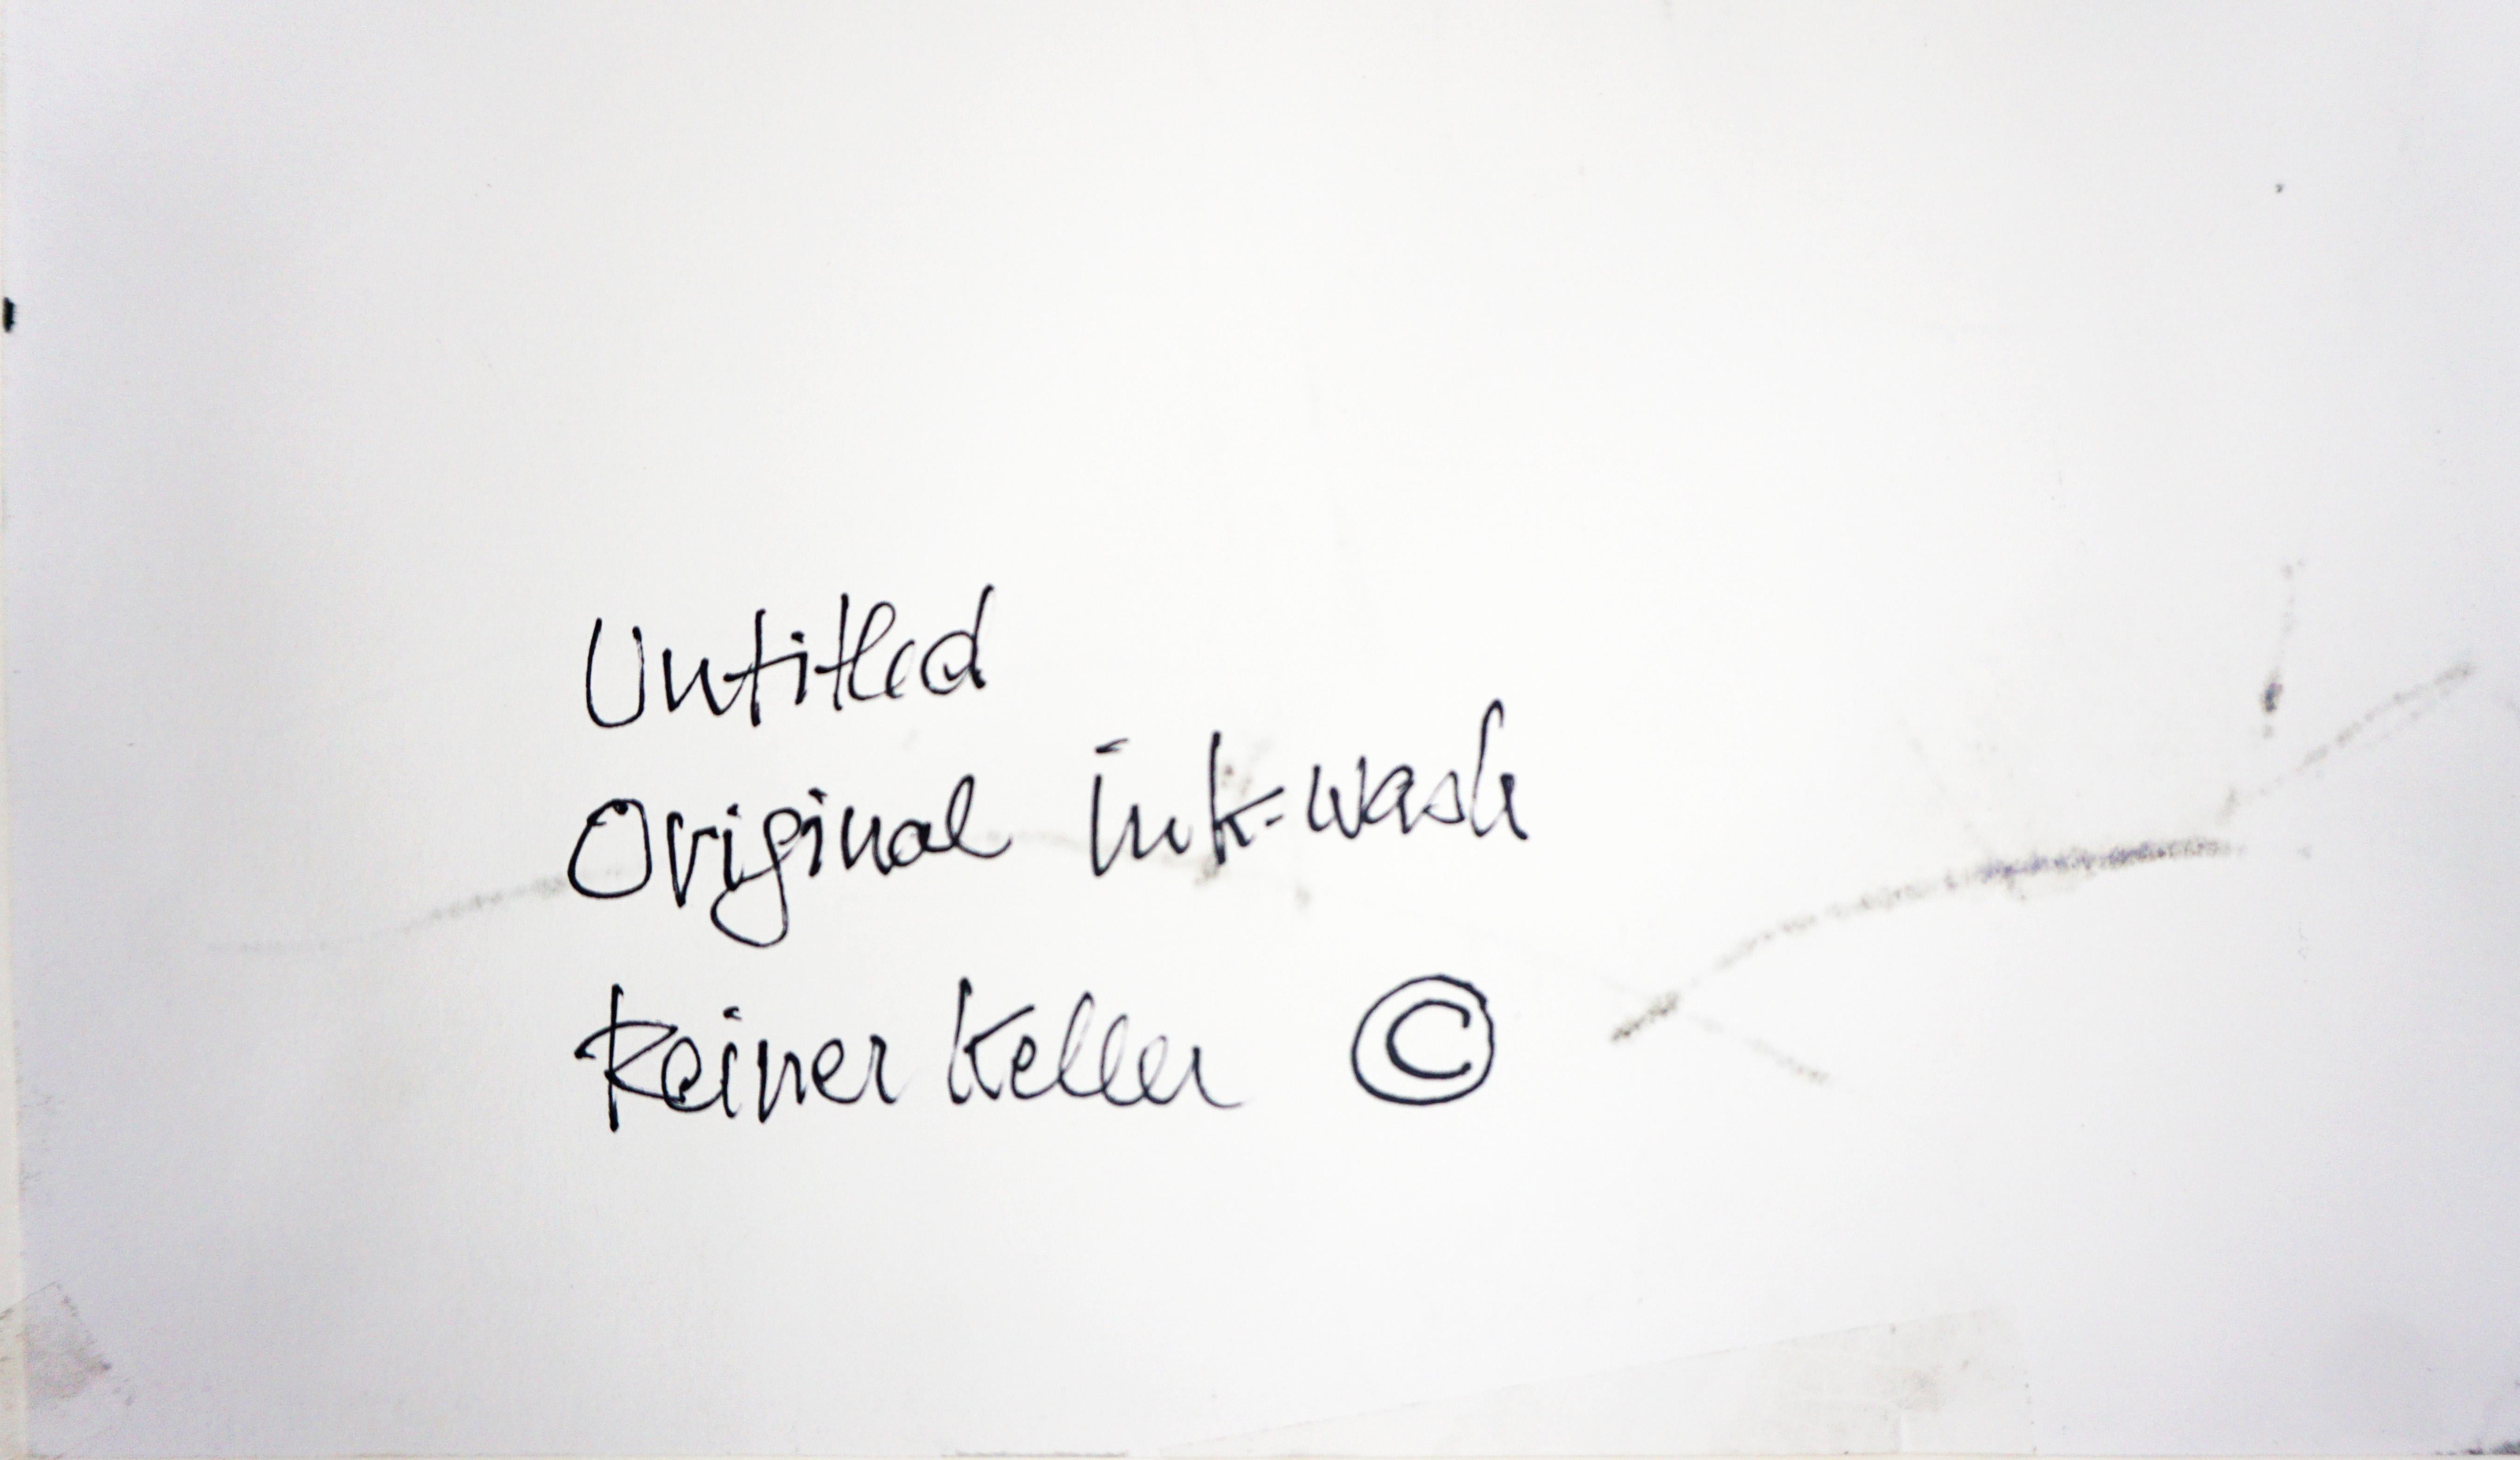 Untitled
Original Ink-wash
Reiner Keller ©